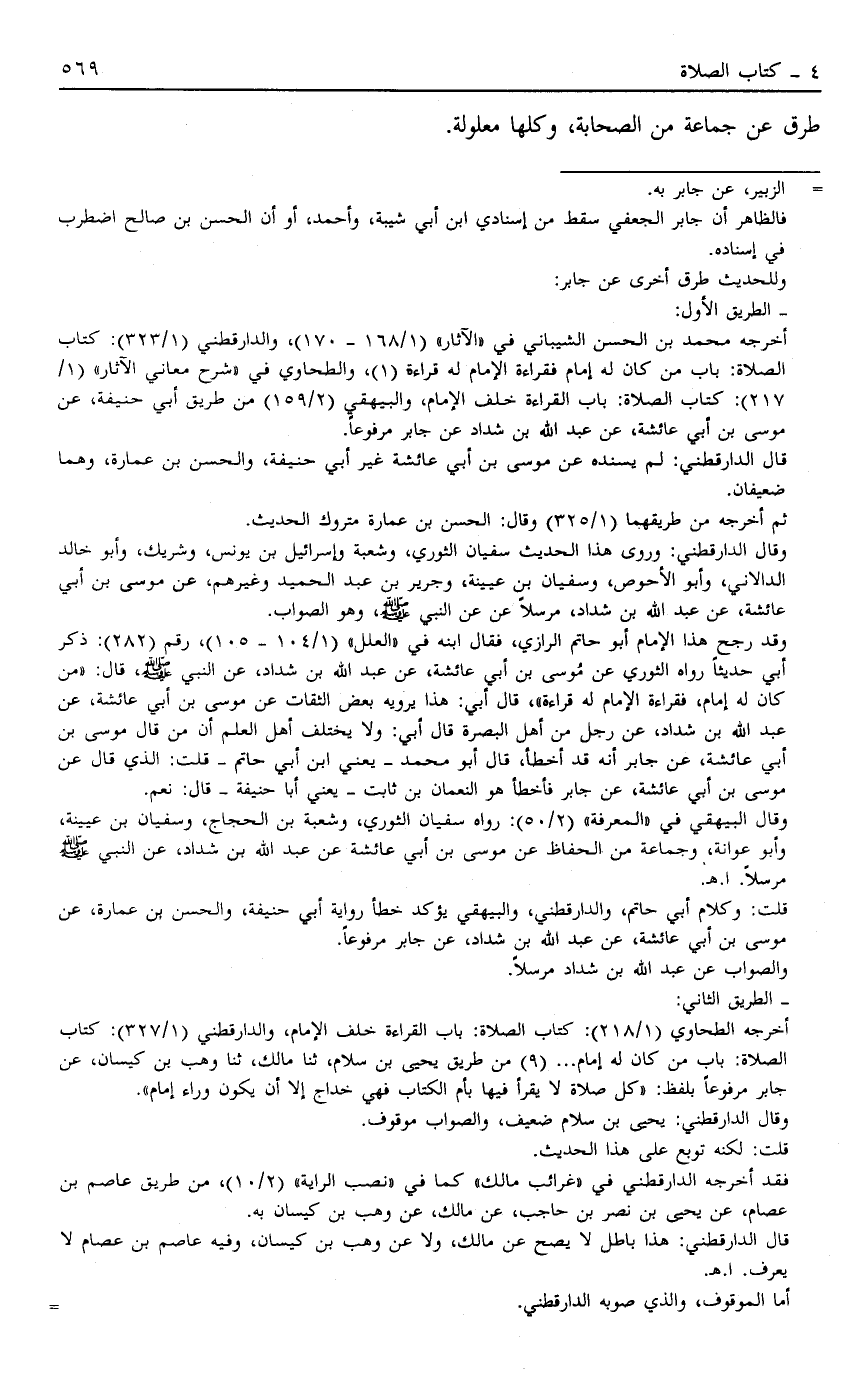 ٤ ـ كتاب الصلاة ٥٦٩
طرق عن جماعة من الصحابة، وكلها معلولة.
= الزبير، عن جابر به.
فالظاهر أن جابر الجعفي سقط من إسنادي ابن أبي شيبة، وأحمد، أو أن الحسن بن صالح اضطرب
في إسناده.
وللحديث طرق أخرى عن جابر:
ـ الطريق الأول:
أخرجه محمد بن الحسن الشيباني في «الآثار» (١/ ١٦٨ ـ ١٧٠)، والدارقطني (١/ ٣٢٣): كتاب
الصلاة: باب من كان له إمام فقراءة الإمام له قراءة (١)، والطحاوي في «شرح معاني الآثار» (١/
٢١٧): كتاب الصلاة: باب القراءة خلف الإمام، والبيهقي (٢/ ١٥٩) من طريق أبي حنيفة، عن
موسى بن أبي عائشة، عن عبد الله بن شداد عن جابر مرفوعاً.
قال الدارقطني: لم يسنده عن موسى بن أبي عائشة غير أبي حنيفة، والحسن بن عمارة، وهما
ضعيفان.
ثم أخرجه من طريقهما (١/ ٣٢٥) وقال: الحسن بن عمارة متروك الحديث.
وقال الدارقطني: وروى هذا الحديث سفيان الثوري، وشعبة وإسرائيل بن يونس، وشريك، وأبو خالد
الدالاني، وأبو الأحوص، وسفيان بن عيينة، وجرير بن عبد الحميد وغيرهم، عن موسى بن أبي
عائشة، عن عبد الله بن شداد، مرسلاً عن عن النبي ﷺ، وهو الصواب.
وقد رجح هذا الإمام أبو حاتم الرازي، فقال ابنه في «العلل» (١/ ١٠٤ ـ ١٠٥)، رقم (٢٨٢): ذكر
أبي حديثاً رواه الثوري عن مُوسى بن أبي عائشة، عن عبد الله بن شداد، عن النبي ﷺ، قال: «من
كان له إمام، فقراءة الإمام له قراءة»، قال أبي: هذا يرويه بعض الثقات عن موسى بن أبي عائشة، عن
عبد الله بن شداد، عن رجل من أهل البصرة قال أبي: ولا يختلف أهل العلم أن من قال موسى بن
أبي عائشة، عن جابر أنه قد أخطأ، قال أبو محمد ـ يعني ابن أبي حاتم ـ قلت: الذي قال عن
موسى بن أبي عائشة، عن جابر فأخطأ هو النعمان بن ثابت ـ يعني أبا حنيفة ـ قال: نعم.
وقال البيهقي في «المعرفة» (٢/ ٥٠): رواه سفيان الثوري، وشعبة بن الحجاج، وسفيان بن عيينة،
وأبو عوانة، وجماعة من الحفاظ عن موسى بن أبي عائشة عن عبد الله بن شداد، عن النبي ﷺ
مرسلاً. ا.هـ.
قلت: وكلام أبي حاتم، والدارقطني، والبيهقي يؤكد خطأ رواية أبي حنيفة، والحسن بن عمارة، عن
موسى بن أبي عائشة، عن عبد الله بن شداد، عن جابر مرفوعاً.
والصواب عن عبد الله بن شداد مرسلاً.
ـ الطريق الثاني:
أخرجه الطحاوي (١/ ٢١٨): كتاب الصلاة: باب القراءة خلف الإمام، والدارقطني (١/ ٣٢٧): كتاب
الصلاة: باب من كان له إمام... (٩) من طريق يحيى بن سلام، ثنا مالك، ثنا وهب بن كيسان، عن
جابر مرفوعاً بلفظ: «كل صلاة لا يقرأ فيها بأم الكتاب فهي خداج إلا أن يكون وراء إمام».
وقال الدارقطني: يحيى بن سلام ضعيف، والصواب موقوف.
قلت: لكنه توبع على هذا الحديث.
فقد أخرجه الدارقطني في «غرائب مالك» كما في «نصب الراية» (٢/ ١٠)، من طريق عاصم بن
عصام، عن يحيى بن نصر بن حاجب، عن مالك، عن وهب بن كيسان به.
قال الدارقطني: هذا باطل لا يصح عن مالك، ولا عن وهب بن كيسان، وفيه عاصم بن عصام لا
يعرف. ا.هـ.
أما الموقوف، والذي صوبه الدارقطني. =